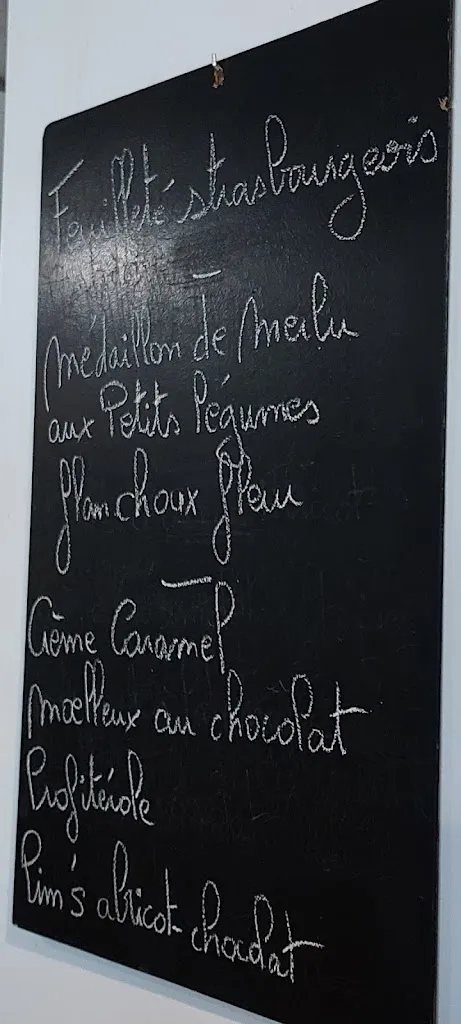 Feuilleté strasbourgeois
médaillon de merlu
aux Petits légumes
flan choux fleur
Crème Caramel
moelleux au chocolat
Profiterole
Pim's abricot-chocolat